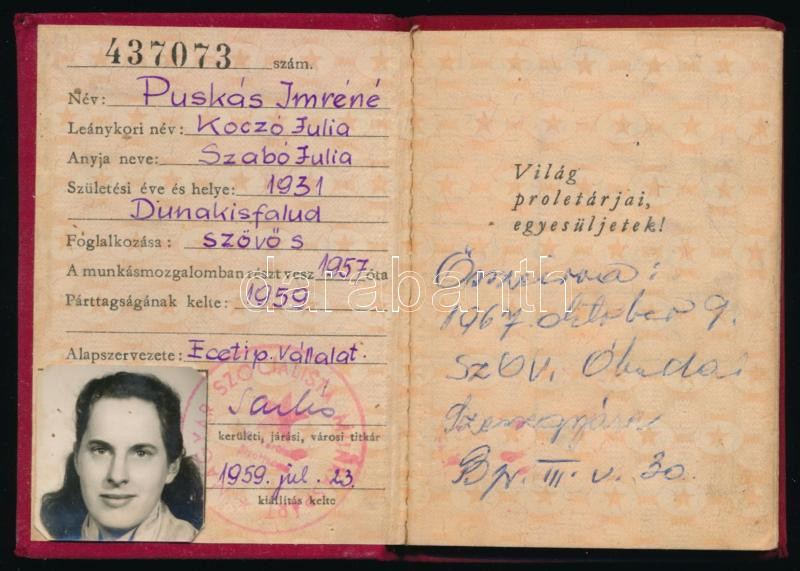 437073 szám.
Név: Puskás Imréné
Leánykori név: Koczó Julia
Anyja neve: Szabó Julia
Születési éve és helye: 1931
Dunakisfalud
Foglalkozása: szövős
A munkásmozgalomban részt vesz 1957 óta
Párttagságának kelte: 1959
Alapszervezete: Ecetip. Vállalat.
MAGYAR SZOCIALISTA MUNKÁSPÁRT
kerületi, járási, városi titkár
1959. júl. 23.
kiállítás kelte
Világ
proletárjai,
egyesüljetek!
Összeírva:
1967 október 9.
Szöv. Óbudai
Bp. III. v. 30.
darabanth